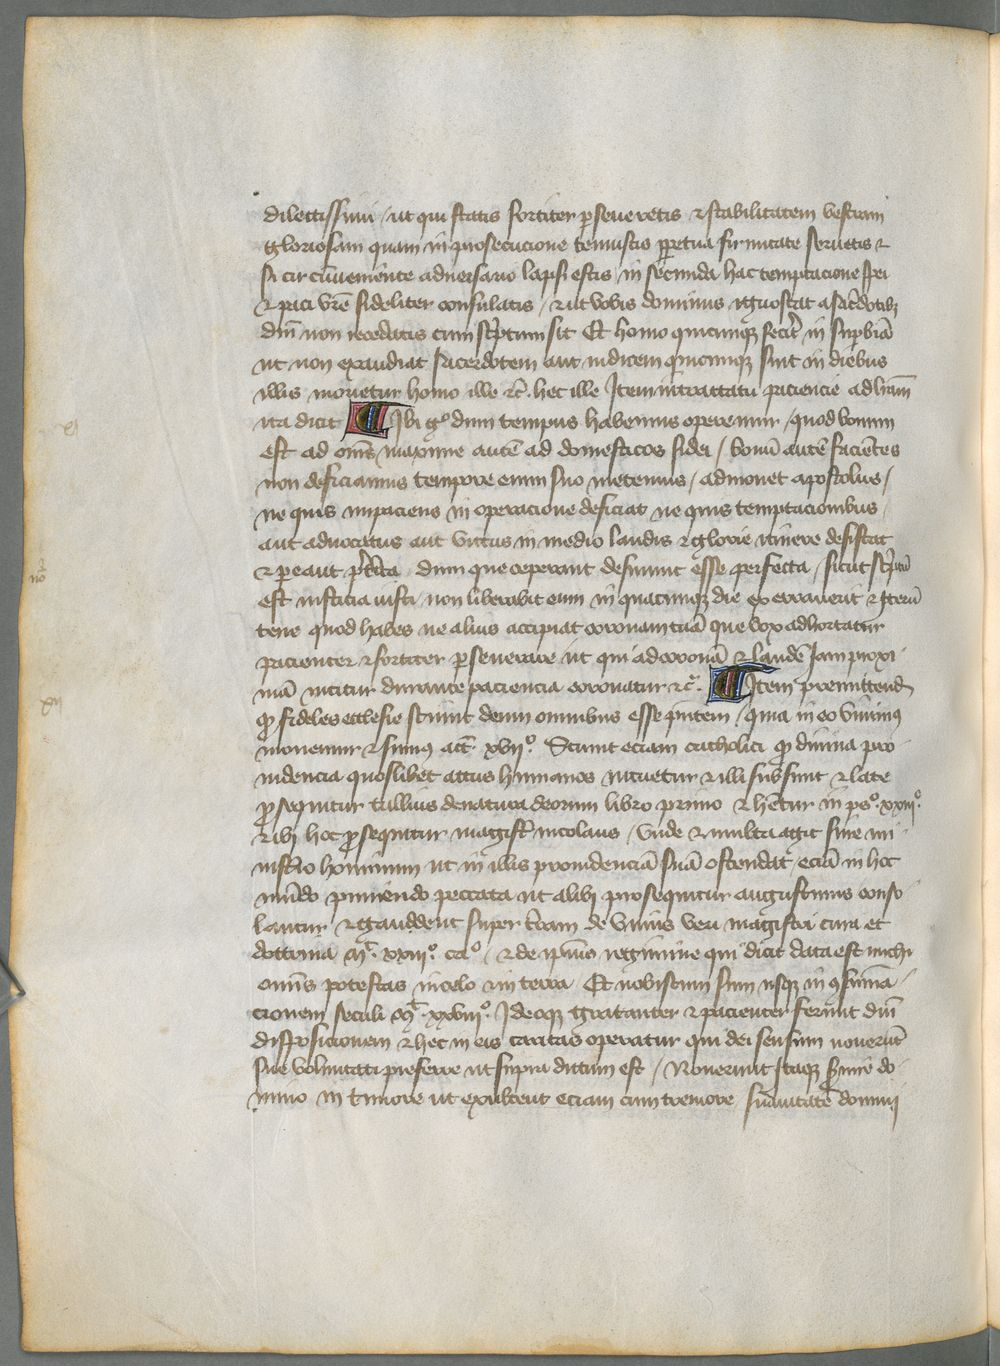 dilectissimi / ut qui statis fortiter ꝑseueretis ⁊ stabilitatem vestram
gloriosam quam in prosecucione tenuistis ꝑpetua firmitate seruetis ⁊
si circūueniente aduersario lapsi estis in secunda hac temptacione spei
⁊ paci vr̄e fideliter consulatis / ⁊ ut vobis dominus ignoscat a sac̄dotibꝫ
dn̄i non recedatis cum scͥptum sit Et homo quicumqꝫ fecͥt in suꝑbiā
ut non exaudiat sacerdotem aut iudicem quicumqꝫ sint in diebus
illis morietur homo ille ⁊c̄ . hec ille Item in tractatu paciencie ad lrām
ita dicit ¶ Ibi gͦ dum tempus habemus operemur / quod bonum
est ad om̄s maxime autē ad domesticos fidei / bonū autē facientes
non deficiamus tempore enim suo metemus / admonet apostolus /
ne quis impaciens in operacione deficiat ne quis temptacionibus
aut aduocatus aut victus in medio laudis ⁊ glorie itinere desistat
⁊ ꝑeant dum que ceperant desinunt esse perfecta / sicut scͥptū
est iusticia iusti / non liberabit eum in quacumqꝫ die exerrauerit ⁊ Iterū
tene quod habes ne alius accipiat coronam tuā que vox adhortatur
pacienter ⁊ fortiter ꝑseuerare ut qui ad coronā ⁊ laudē Iam proxi-
mā nititur durante paciencia coronatur ⁊c̄. ¶ Item premittend
ꝙ fideles ecclesie sciunt deum omnibus esse pn̄tem / quia in eo viuimꝰ
mouemur ⁊ sumꝰ act. xvijͦ. Sciunt eciam catholici ꝙ diuina pro-
uidencia quoslibet actus humanos intuetur ⁊ illi subsunt ⁊ late
ꝓsequitur tullius de natura deorum libro primo ⁊ hētur in psͦ. xxiijͦ.
⁊ ibi hoc ꝓsequitur magist̄ nicolaus / vnde ⁊ multa agit sine mi-
nist̄io hominum ut in illis prouidenciā suā ostendat eciā in hoc
mūdo puniendo peccata ut alibi prosequitur augustinus conso
lantur ⁊ gaudent super t̄ram de vnius veri magistri cura et
doctrina Mͭ. xxiijͦ. / ⁊ de ipsius regimine qui dicit data est michi
om̄s potestas in celo ⁊ in terra Et vobiscum sum usqꝫ in ꝯsuma-
cionem seculi Mͭ. xxviijͦ. Ideoqꝫ gratanter ⁊ pacienter ferunt diuī
disposicionem ⁊ hec in eis caritas operatur qui dei sensum nouerūt
sue voluntati preferre ut supra dictum est / Nouerunt Itaqꝫ ẜuire do-
mino in timore ut exultent eciam cum tremore suauitatē domini